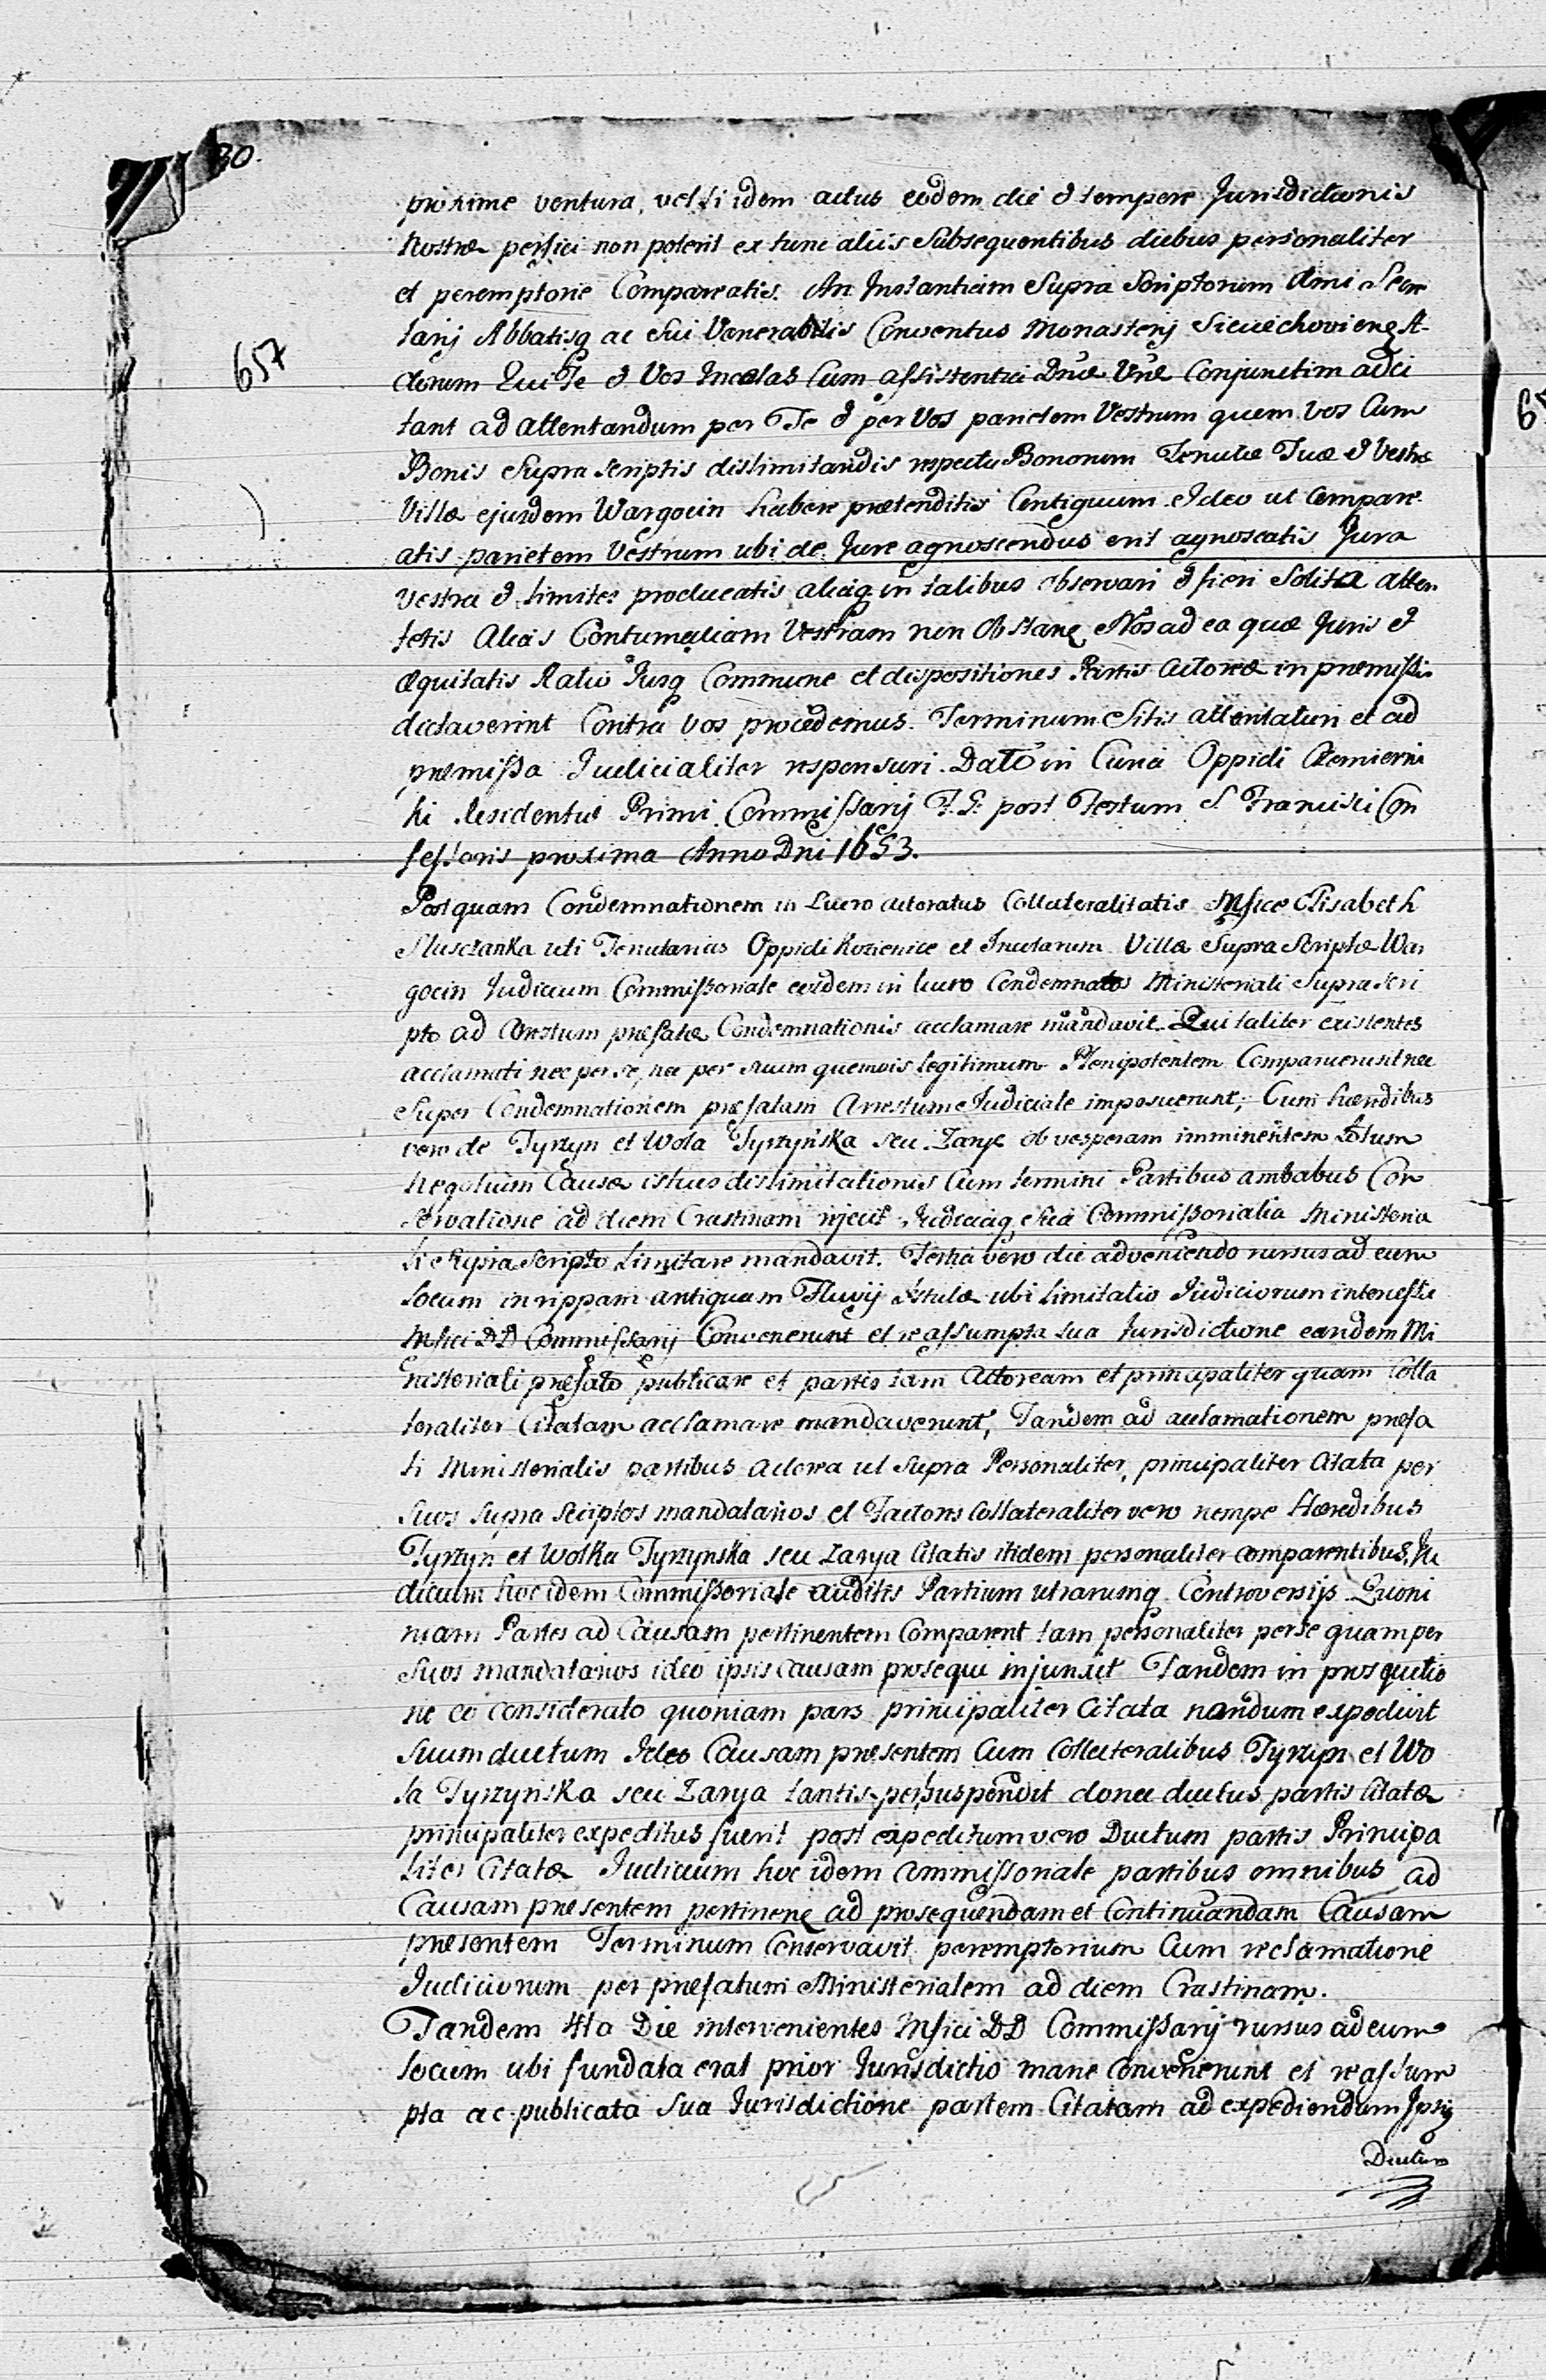 30.
proxime ventura, vel si idem actus eodem die et tempore Jurisdictionis
Nostræ perfici non poterit ex tunc aliis Subsequentibus diebus personaliter
et peremptorie Compareatis. An Instantiam Supra Scriptorum Dmi Secre
tarij Abbatisq ac Sui Venerabilis Conventus Monasterij Sieciechoviens A-
ctorum Qui Te et Vos Incolas Cum assistentia Dnæ Vræ Conjunctim adci
657
tant ad attentandum per Te et per Vos parietem Vestrum quem vos Cum
Bonis Supra scriptis dislimitandis respectu Bonorum Tenutæ Tuæ et Vestræ
Villæ ejusdem Wargocin habere prætenditis Contiguum. Ideo ut Compare
atis parietem Vestrum ubi de Jure agnoscendus erit agnoscatis Jura
Vestra et limites producatis aliaq in talibus observari et fieri Solita atten
tetis Alias Contumaciam Vestram non Obstane Nos ad ea quæ Juris et
æquitatis Ratio Jusq Commune et dispositiones Partis Actoreæ in præmissis
dictaverint Contra vos procedemus. Terminum Sitis attentaturi et ad
præmissa Judicialiter responsuri. Datō in Curia Oppidi
hi Residentiæ Primi Commissarij F. 6. post Festum S Francisci Con
fessoris proxima Anno Dni 1653.
Postquam Condemnationem in Lucro actoratus Collateralitatis Mficæ Elisabeth
Sluscżanka uti Tenutarias Oppidi Kozienice et Incolarum Villæ Supra Scriptæ War
gocin Judicium Commissoriale eosdem in lucro Condemnatos Ministeriali Supra scri
pto ad Arestum præfatæ Condemnationis acclamare mandavit. Qui taliter existentes
acclamati nec per se, nec per suum quemvis legitimum Plenipotentem Comparuerunt nec
Super Condemnationem præfatam Arrestum Judiciale imposuerunt; Cum hæredibus
vero de Tyrzyn et Wola Tyrzyńska seu Zarye ob vesperam imminentem totum
Negotium Causæ istius dislimitationis Cum termini Partibus ambabus Con
servatione ad diem Crastinam rejecit Judiciaq Sua Commissorialia Ministeria
li Supra Scripto Limitare mandavit. Tertia vero die adveniendo rursus ad eum
locum in rippam antiquam Fluvij Istulæ ubi limitatio Judiciorum
Mfici DD Commissarij Convenerunt et reassumpta sua Jurisdictione eandem Mi
nisteriali præfato publicare et partes tam Actoream et principaliter quam Colla
teraliter Citatam acclamare mandaverunt; Tandem ad acclamationem præfa
ti Ministerialis partibus Actorea ut Supra Personaliter, principaliter Citata per
Suos supra Scriptos mandatarios et Factores Collateraliter vero nempe Hæredibus
Tyrzyn et Wolka Tyrzynska seu Zarya Citatis itidem personaliter comparentibus, Ju
dicium hoc idem Commissoriale auditis Partium utrarumq Controversijs. Quoni
niam Partes ad Causam pertinentem Comparent tam personaliter per se quam per
Suos mandatarios ideo ipsis causam prosequi injunxit Tandem in prosequutio
ne eo considerato quoniam pars principaliter Citata nondum expedivit
Suum ductum Ideo Causam præsentem Cum Collateralibus Tyrzyn et Wo
la Tyrzyńska seu Zarya tantis-per suspendit donec ductus partis Citatæ
principaliter expeditus fuerit post expeditum vero Ductum partis Principa
liter Citatæ Judicium hoc idem Commissoriale partibus omnibus ad
Causam præsentem pertinene ad prosequendam et Continuandam Causam
præsentem Terminum Conservavit peremptorium Cum reclamatione
Judiciorum per præfatum Ministerialem ad diem Crastinam.
Tandem 4ta Die intervenientes Mfici DD Commissarij rursus ad eum
locum ubi fundata erat prior Jurisdictio mane convenerunt et reassum
pta ac publicata Sua Jurisdictione partem Citatam ad expediendum Ipsiq
Ductum